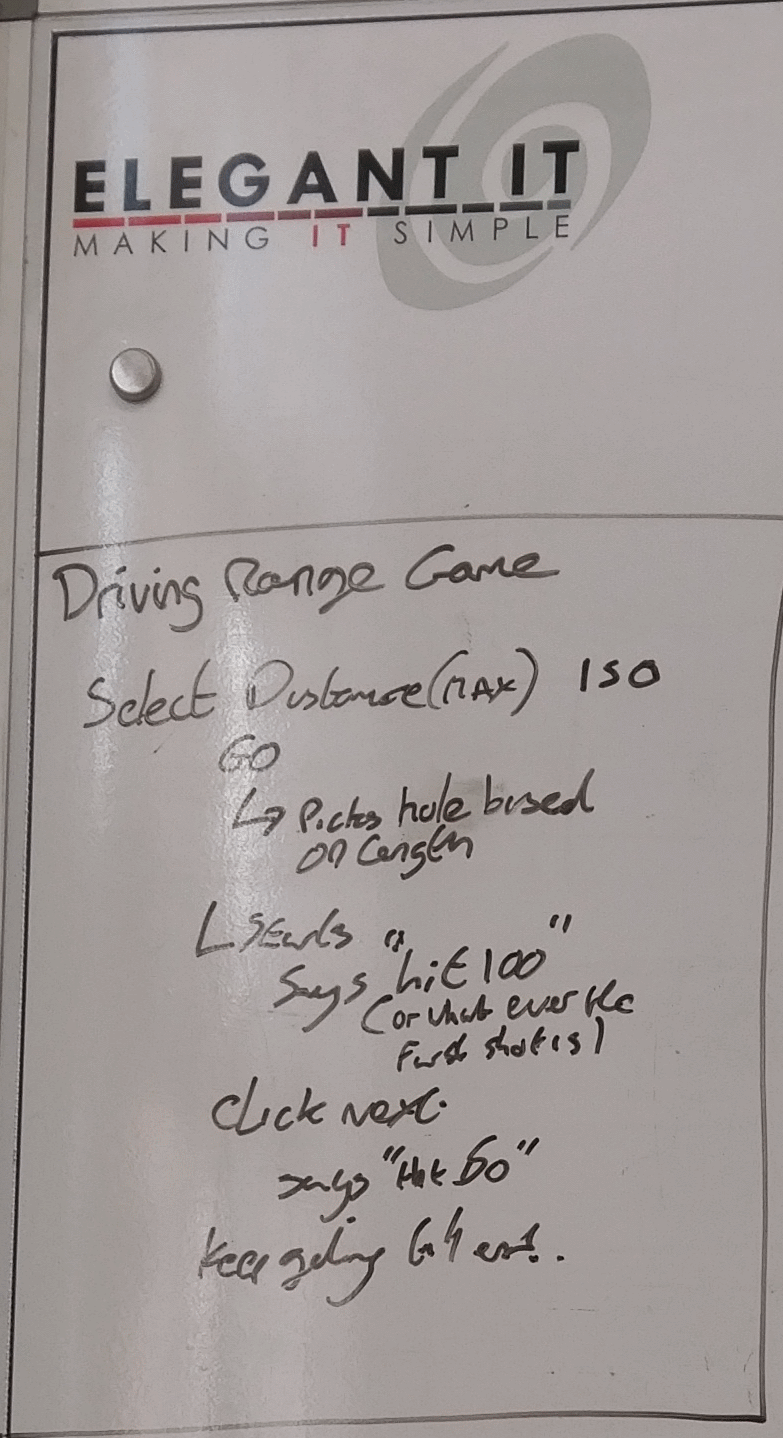 ELEGANT IT
MAKING IT SIMPLE
Driving Range Game
Select Distance (MAX) 150
GO
↳ Picks hole based
on Length
L Starts
says "hit 100"
(or what ever the
First shot is)
Click Next.
says "Hit 50"
Keep going till end.